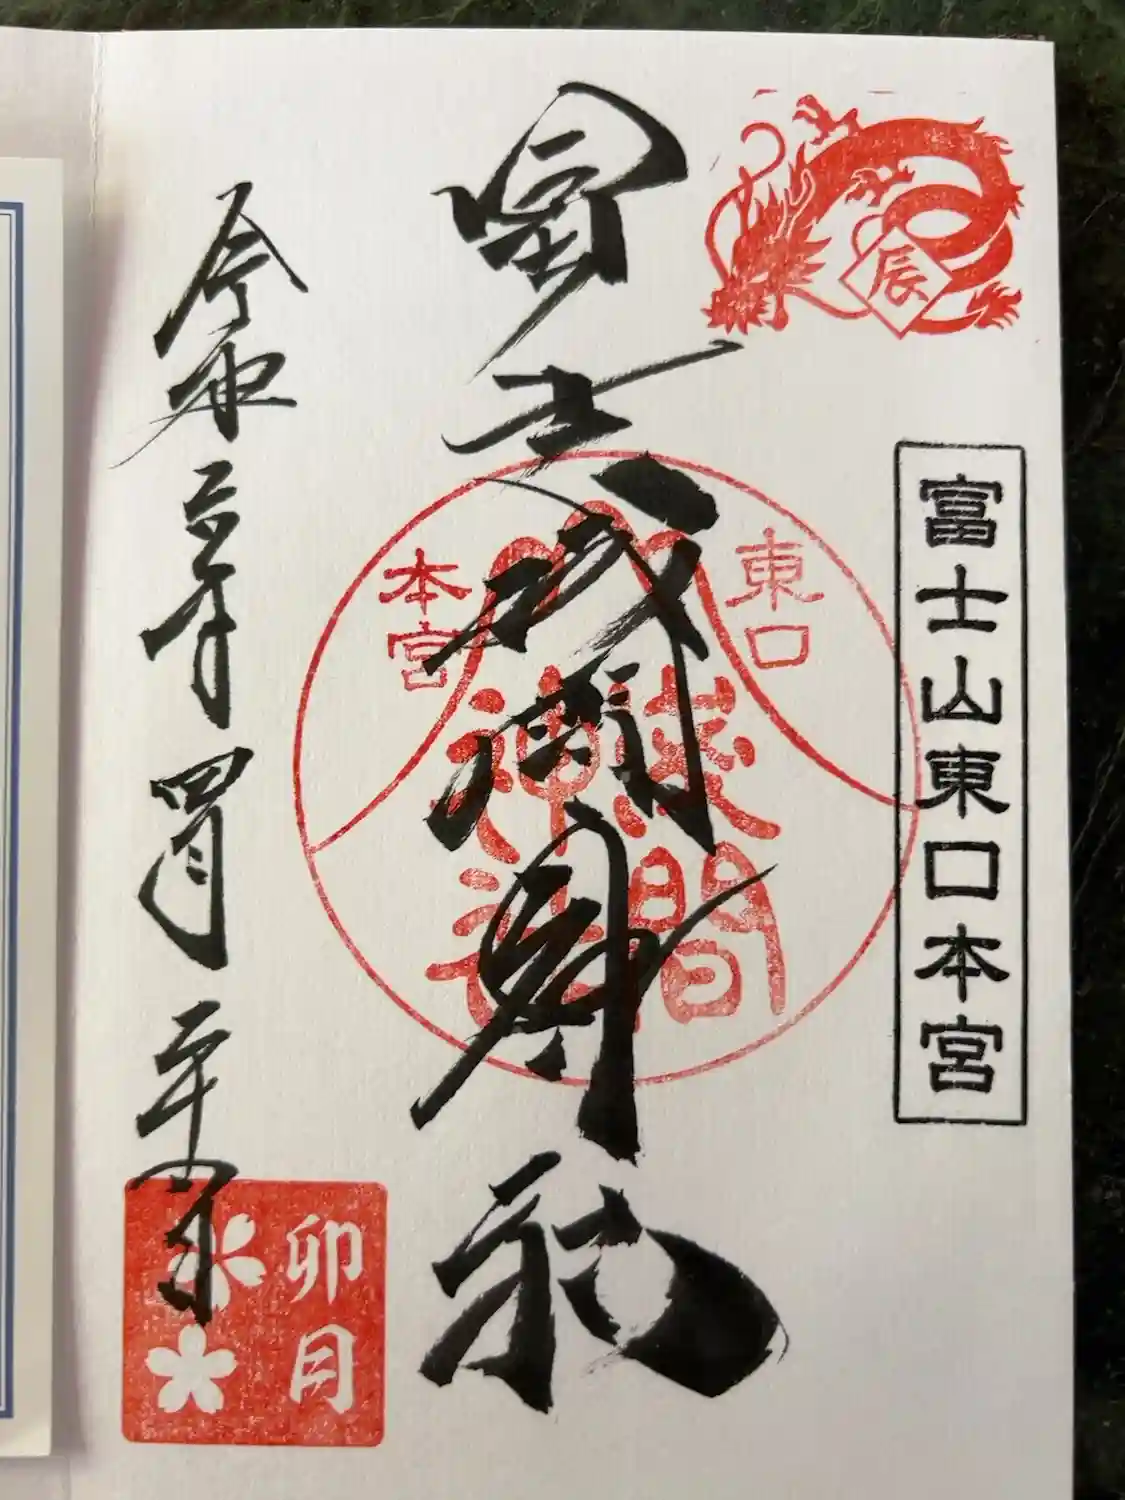 辰
富士山東口本宮
冨士浅間神社
東口
本宮
淺間
神社
令和六年四月
卯月